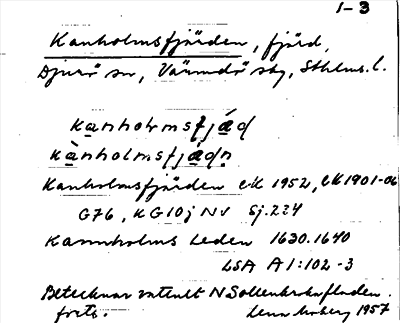 1-3
Kanholmsfjärden, fjärd,
Djurö sn, Värmdö skg, Sthlms. l.
kanholmsfjád
kànholmsfjádn
Kanholmsfjärden ek 1952, ek 1901-06
G76, KG10j NV Sj.224
Kannholms Leden 1630.1640
LSA A1:102-3
Betecknar vattnet N Sollenkrokafladen.
forts. 1957